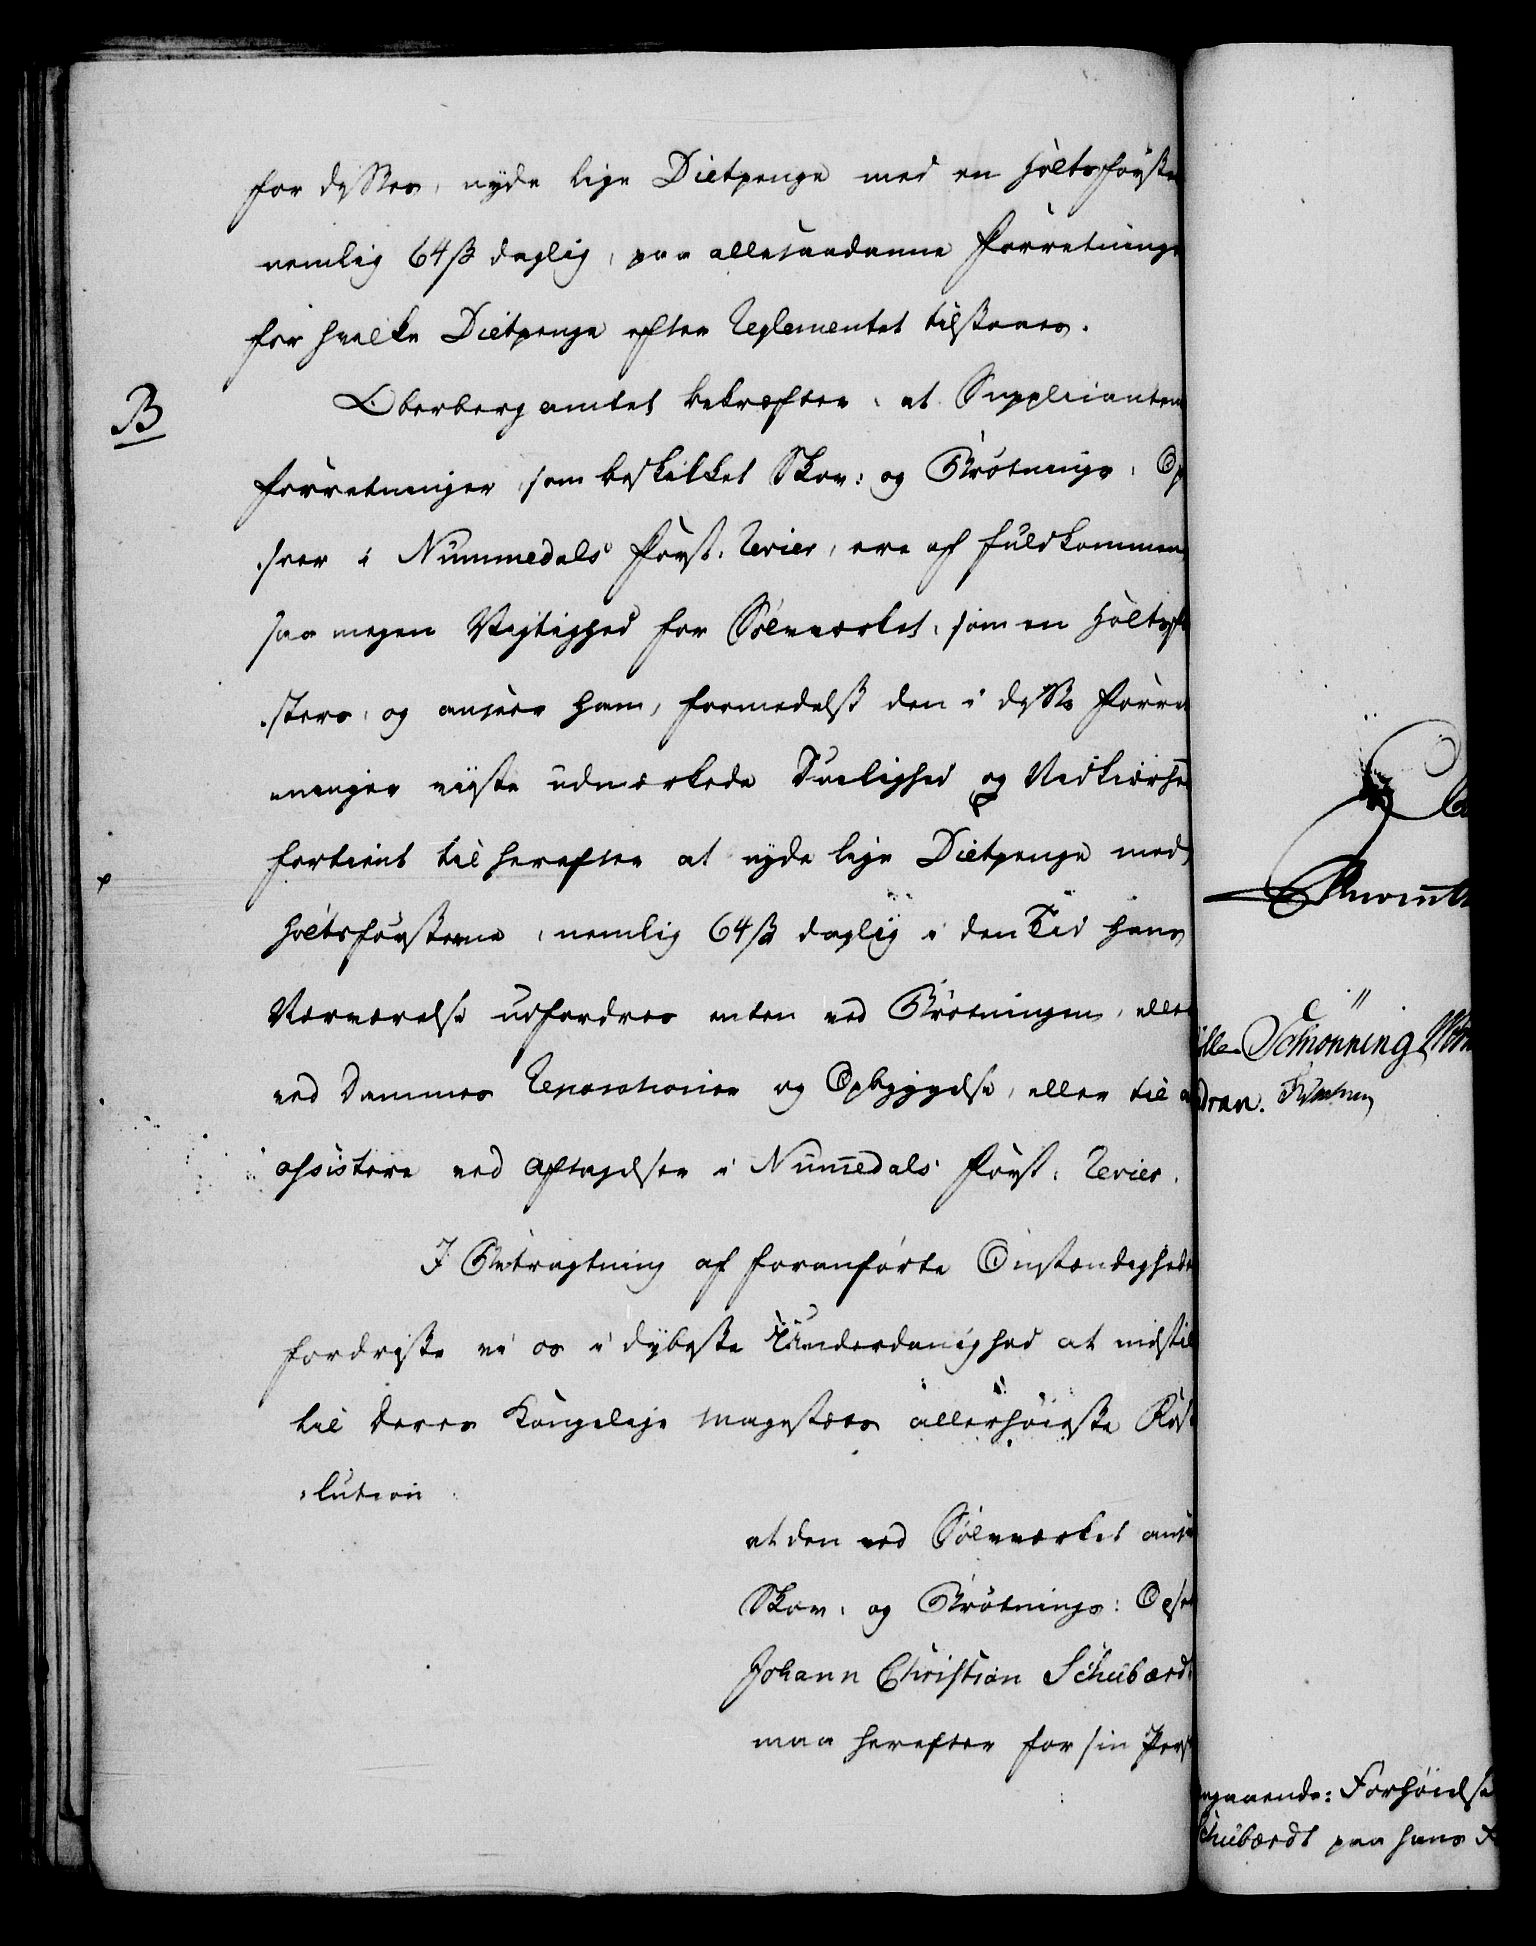 for disses, nyde lige Dietpenge med en Holtsförste
nemlig 64 ß daglig, paa alle saadanne Forretninge
for hvilke Dietpenge efter Reglementet tilstaaes.
B
Oberbergamtet bekræfter, at Supplicanten
Forretninger, som beskikket Skov: og Brötnings: Op
:seer i Nummedals Forst: Revier, ere af fuldkommen
saa megen Vigtighed for Sölvverket, som en Holtsfö
:sters, og ansees ham, formedelst den i disse Forre
:ninger viiste udmærkede Duelighed og Nidkierhed
fortient til herefter at nyde lige Dietpenge med
Holtsförsterne, nemlig 64 ß daglig i den Tid hans
Nærværelse udfordres enten ved Brötningen, eller
ved Dammes Reparationer og Opbyggelse, eller til a
assistere ved Aftagelser i Numedals Forst: Revier.
I Betragtning af foranförte Omstændighede
fordriste vi os i dybeste Underdanighed at indstil
til Deres Kongelige Majestæts allerhöieste Reso
:lution
at den ved Sölvverket ansa
Skov: og Brötnings: Opse
Johann Christian Schubardt
maa herefter for sin Pers
Schiönning
dran.
ngaaende: Forhöielse
Schubardt paa hans